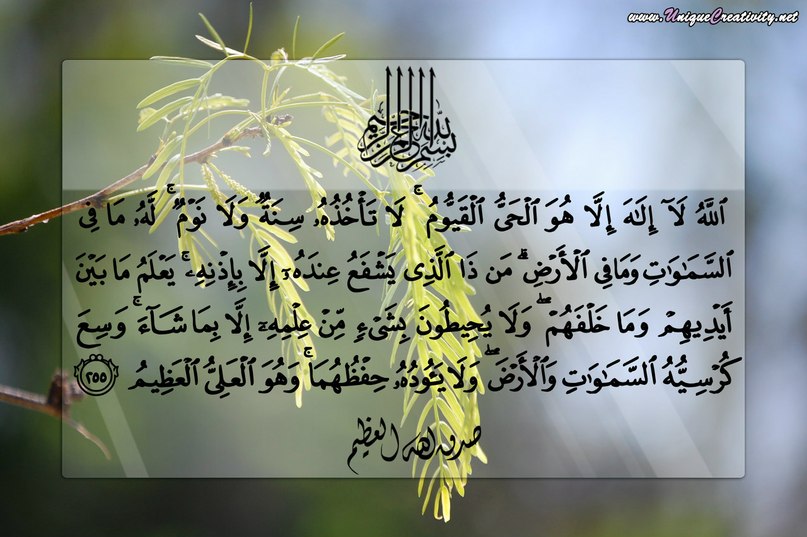 www.UniqueCreativity.net
بسم الله الرحمن الرحيم
ٱللَّهُ لَآ إِلَٰهَ إِلَّا هُوَ ٱلْحَىُّ ٱلْقَيُّومُ ۚ لَا تَأْخُذُهُۥ سِنَةٌ وَلَا نَوْمٌ ۚ لَّهُۥ مَا فِى
ٱلسَّمَٰوَٰتِ وَمَا فِى ٱلْأَرْضِ ۗ مَن ذَا ٱلَّذِى يَشْفَعُ عِندَهُۥٓ إِلَّا بِإِذْنِهِۦ ۚ يَعْلَمُ مَا بَيْنَ
أَيْدِيهِمْ وَمَا خَلْفَهُمْ ۖ وَلَا يُحِيطُونَ بِشَىْءٍ مِّنْ عِلْمِهِۦٓ إِلَّا بِمَا شَآءَ ۚ وَسِعَ
كُرْسِيُّهُ ٱلسَّمَٰوَٰتِ وَٱلْأَرْضَ ۖ وَلَا يَـُٔودُهُۥ حِفْظُهُمَا ۚ وَهُوَ ٱلْعَلِىُّ ٱلْعَظِيمُ ٢٥٥
صدق الله العظيم